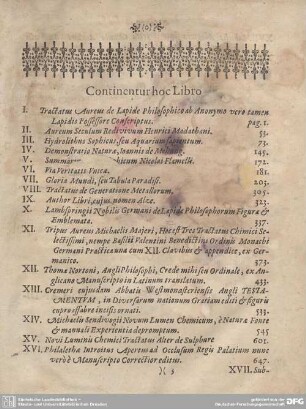 (o)
Continentur hoc Libro
I. Tractatus Aureus de Lapide Philosophico ab Anonymo vero tamen
Lapidis Possessore Conscriptus. pag. 1.
II. Aureum Seculum Redivivum Henrici Madathani. 53.
III. Hydrolithus Sophicus, seu Aquarium Sapientum. 73.
IV. Demonstratio Naturæ, Ioannis de Mehung. 145.
V. Summarium Nicolai Flamelli. 172.
VI. Via Veritatis Vnicæ. 181.
VII. Gloria Mundi, seu Tabula Paradisi. 203.
VIII. Tractatus de Generatione Metallorum. 305.
IX. Author Libri, cujus nomen Alze. 323.
X. Lambspringii Nobilis Germani de Lapide Philosophorum Figuræ &
Emblemata. 337.
XI. Tripus Aureus Michaelis Majeri, Hoc est Tres Tractatus Chimici Se-
lectissimi, nempe Basilii Valentini Benedictini Ordinis Monachi
Germani Practica una cum XII. Clavibus & appendice, ex Ger-
manico. 373.
XII. Thomæ Nortoni, Angli Philosophi, Crede mihi seu Ordinale, ex An-
glicano Manuscripto in Latinum translatum. 433.
XIII. Cremeri cujusdam Abbatis Westmonasteriensis Angli TESTA-
MENTVM, in Diversarum nationum Gratiam editi & figuris
cupro affabre incisis ornati. 533.
XIV. Michaelis Sendivogii Novum Lumen Chemicum, è Naturæ Fonte
& manuali Experientia depromptum. 545
XV. Novi Luminis Chemici Tractatus Alter de Sulphure 601.
XVI. Philalethæ Introitus Apertus ad Occlusum Regis Palatium nunc
verò è Manuscripto Correctior editus. 647.
)( 3 XVII. Sub-